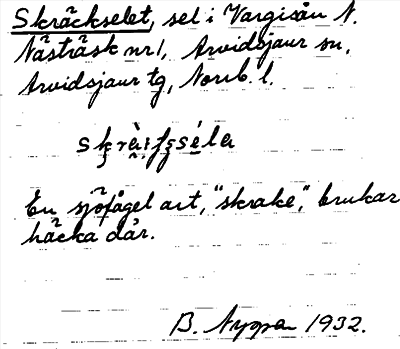 Skräckselet, sel i Vargisån N.
Nästräsk nr 1, Arvidsjaur sn,
Arvidsjaur tg, Norrb. l.
En sjöfågel art, "skrake", brukar
häcka där.
B. Nyman 1932.